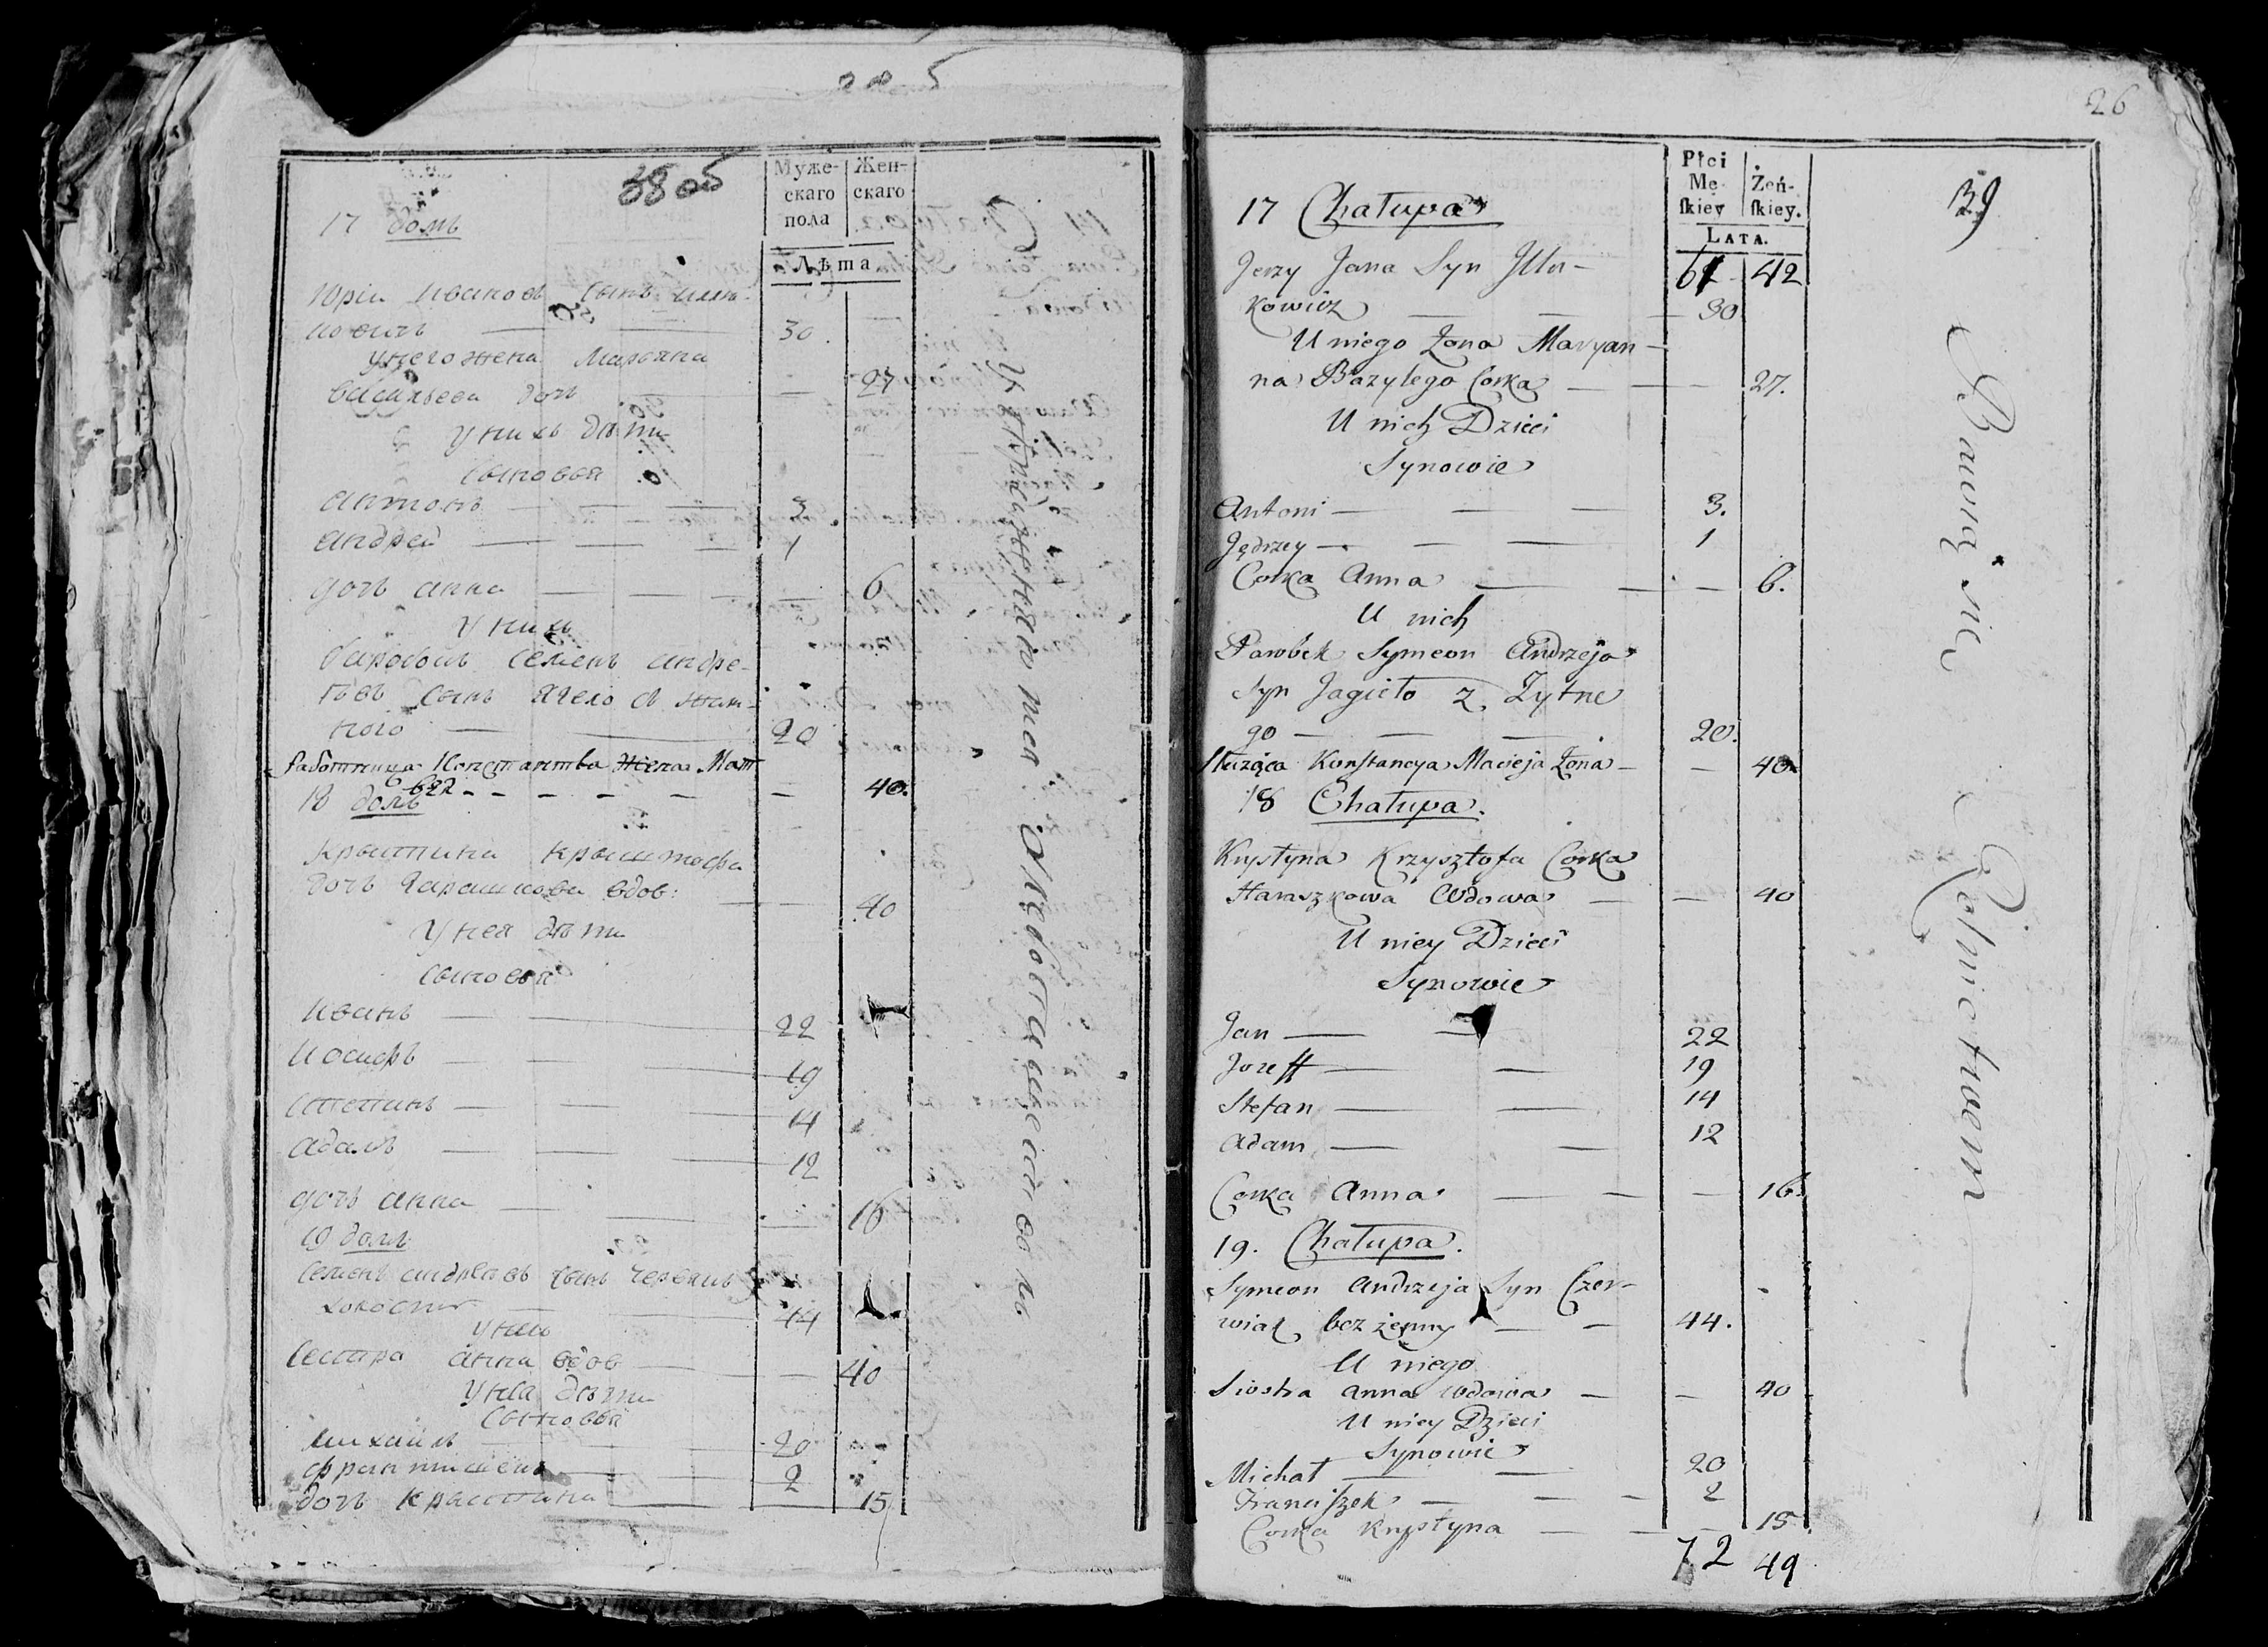 38 об
Муже-
скаго
пола
Жен-
скаго
Лѣта
17 домъ
Юрiи Ивановъ сынъ Илю-
ковичъ — — 30.
У него жена Марьяна
Васильева дочь — — 27
У нихъ дѣти
Сыновья
Антонъ — — — 3
Андрей — — — 1
Дочь Анна — — — 6
У нихъ
Паробокъ Семенъ Андре-
евъ сынъ Ягело съ Жит-
ного — — 20
Работница Константва Жена Мат
беа - - - - - - 40.
18 домъ
Крыштина Крыштофа
дочь Гарашкова вдов: — — 40
У нея дѣти
Сыновья
Иванъ — — 22
Иосифъ — — 19
Степанъ — — — 14
Адамъ — — — 12
Дочь Анна — — — 16
19 домъ
Семенъ Андреевъ сынъ Червякъ
холостъ — — 44
У него
Сестра Анна вдов — — 40
У нея дѣти
Сыновья
Михайлъ — 20
Францишекъ — — 2
дочь Крыстина — — 15
26
39
Płci
Mę-
skiey
Żeń-
skiey.
LATA.
61 42
17 Chałupa
Jerzy Jana Syn Jllu-
kowicz — — — 30
U niego Żona Maryan-
na Bazylego Corka — — — 27.
U nich Dzieci
Synowie
Antoni — — — 3.
Jędrzey — — — 1
Corka Anna — — — 6.
U nich
Parobek Symeon Andrzeja
Syn Jagieło z Żytne
go — — — 20.
Służąca Konstancya Macieja Żona — — 40
18 Chałupa.
Krystyna Krzysztofa Corka
Haraszkowa Wdowa — — 40
U niey Dzieci
Synowie
Jan — — 22
Jozeff — — 19
Stefan — — 14
Adam — — 12
Corka Anna — — — 16.
19. Chałupa.
Symeon Andrzeja Syn Czer-
wiak bez żenny — — 44.
U niego
Siostra Anna Wdowa — — 40
U niey Dzieci
Synowie
Michał — — 20
Franciszek — — — 2
Corka Krystyna — — — 15.
72 49
Bawią się Rolnictwem —